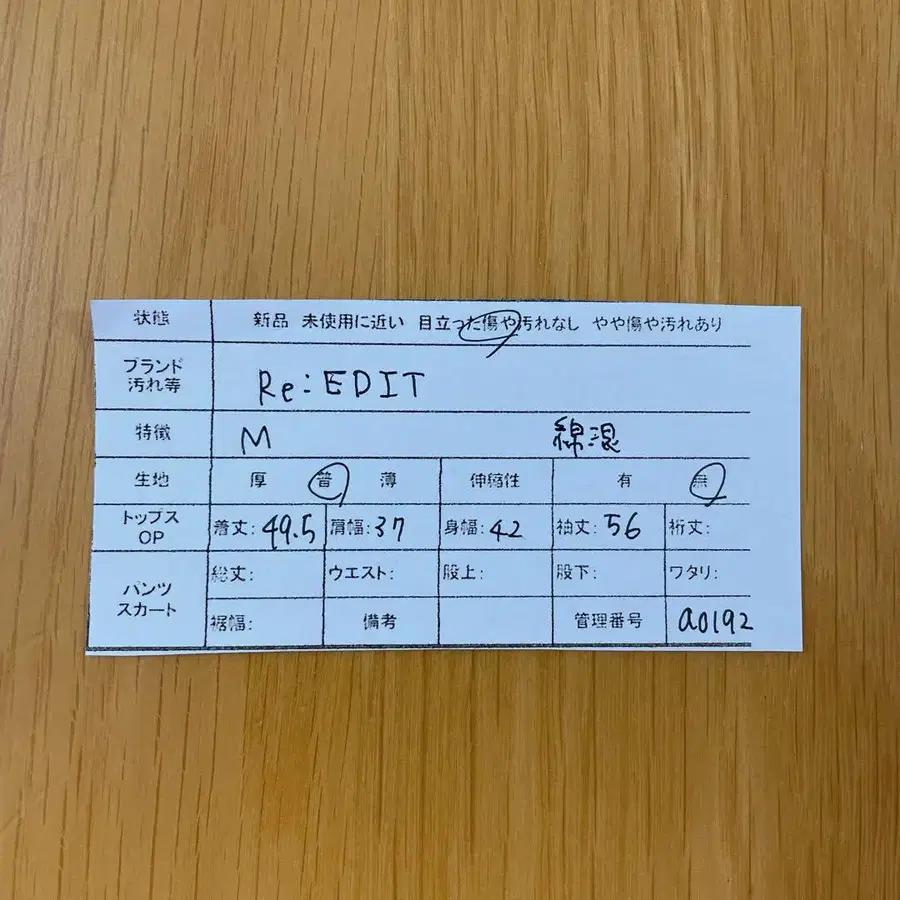 状態 新品 未使用に近い 目立った傷や汚れなし やや傷や汚れあり
ブランド
汚れ等 Re:EDIT
特徴 M 綿混
生地 厚 普 薄 伸縮性 有 無
トップス
OP 着丈: 49.5 肩幅: 37 身幅: 42 袖丈: 56 裄丈:
パンツ
スカート 総丈: ウエスト: 股上: 股下: ワタリ:
裾幅: 備考 管理番号 a0192